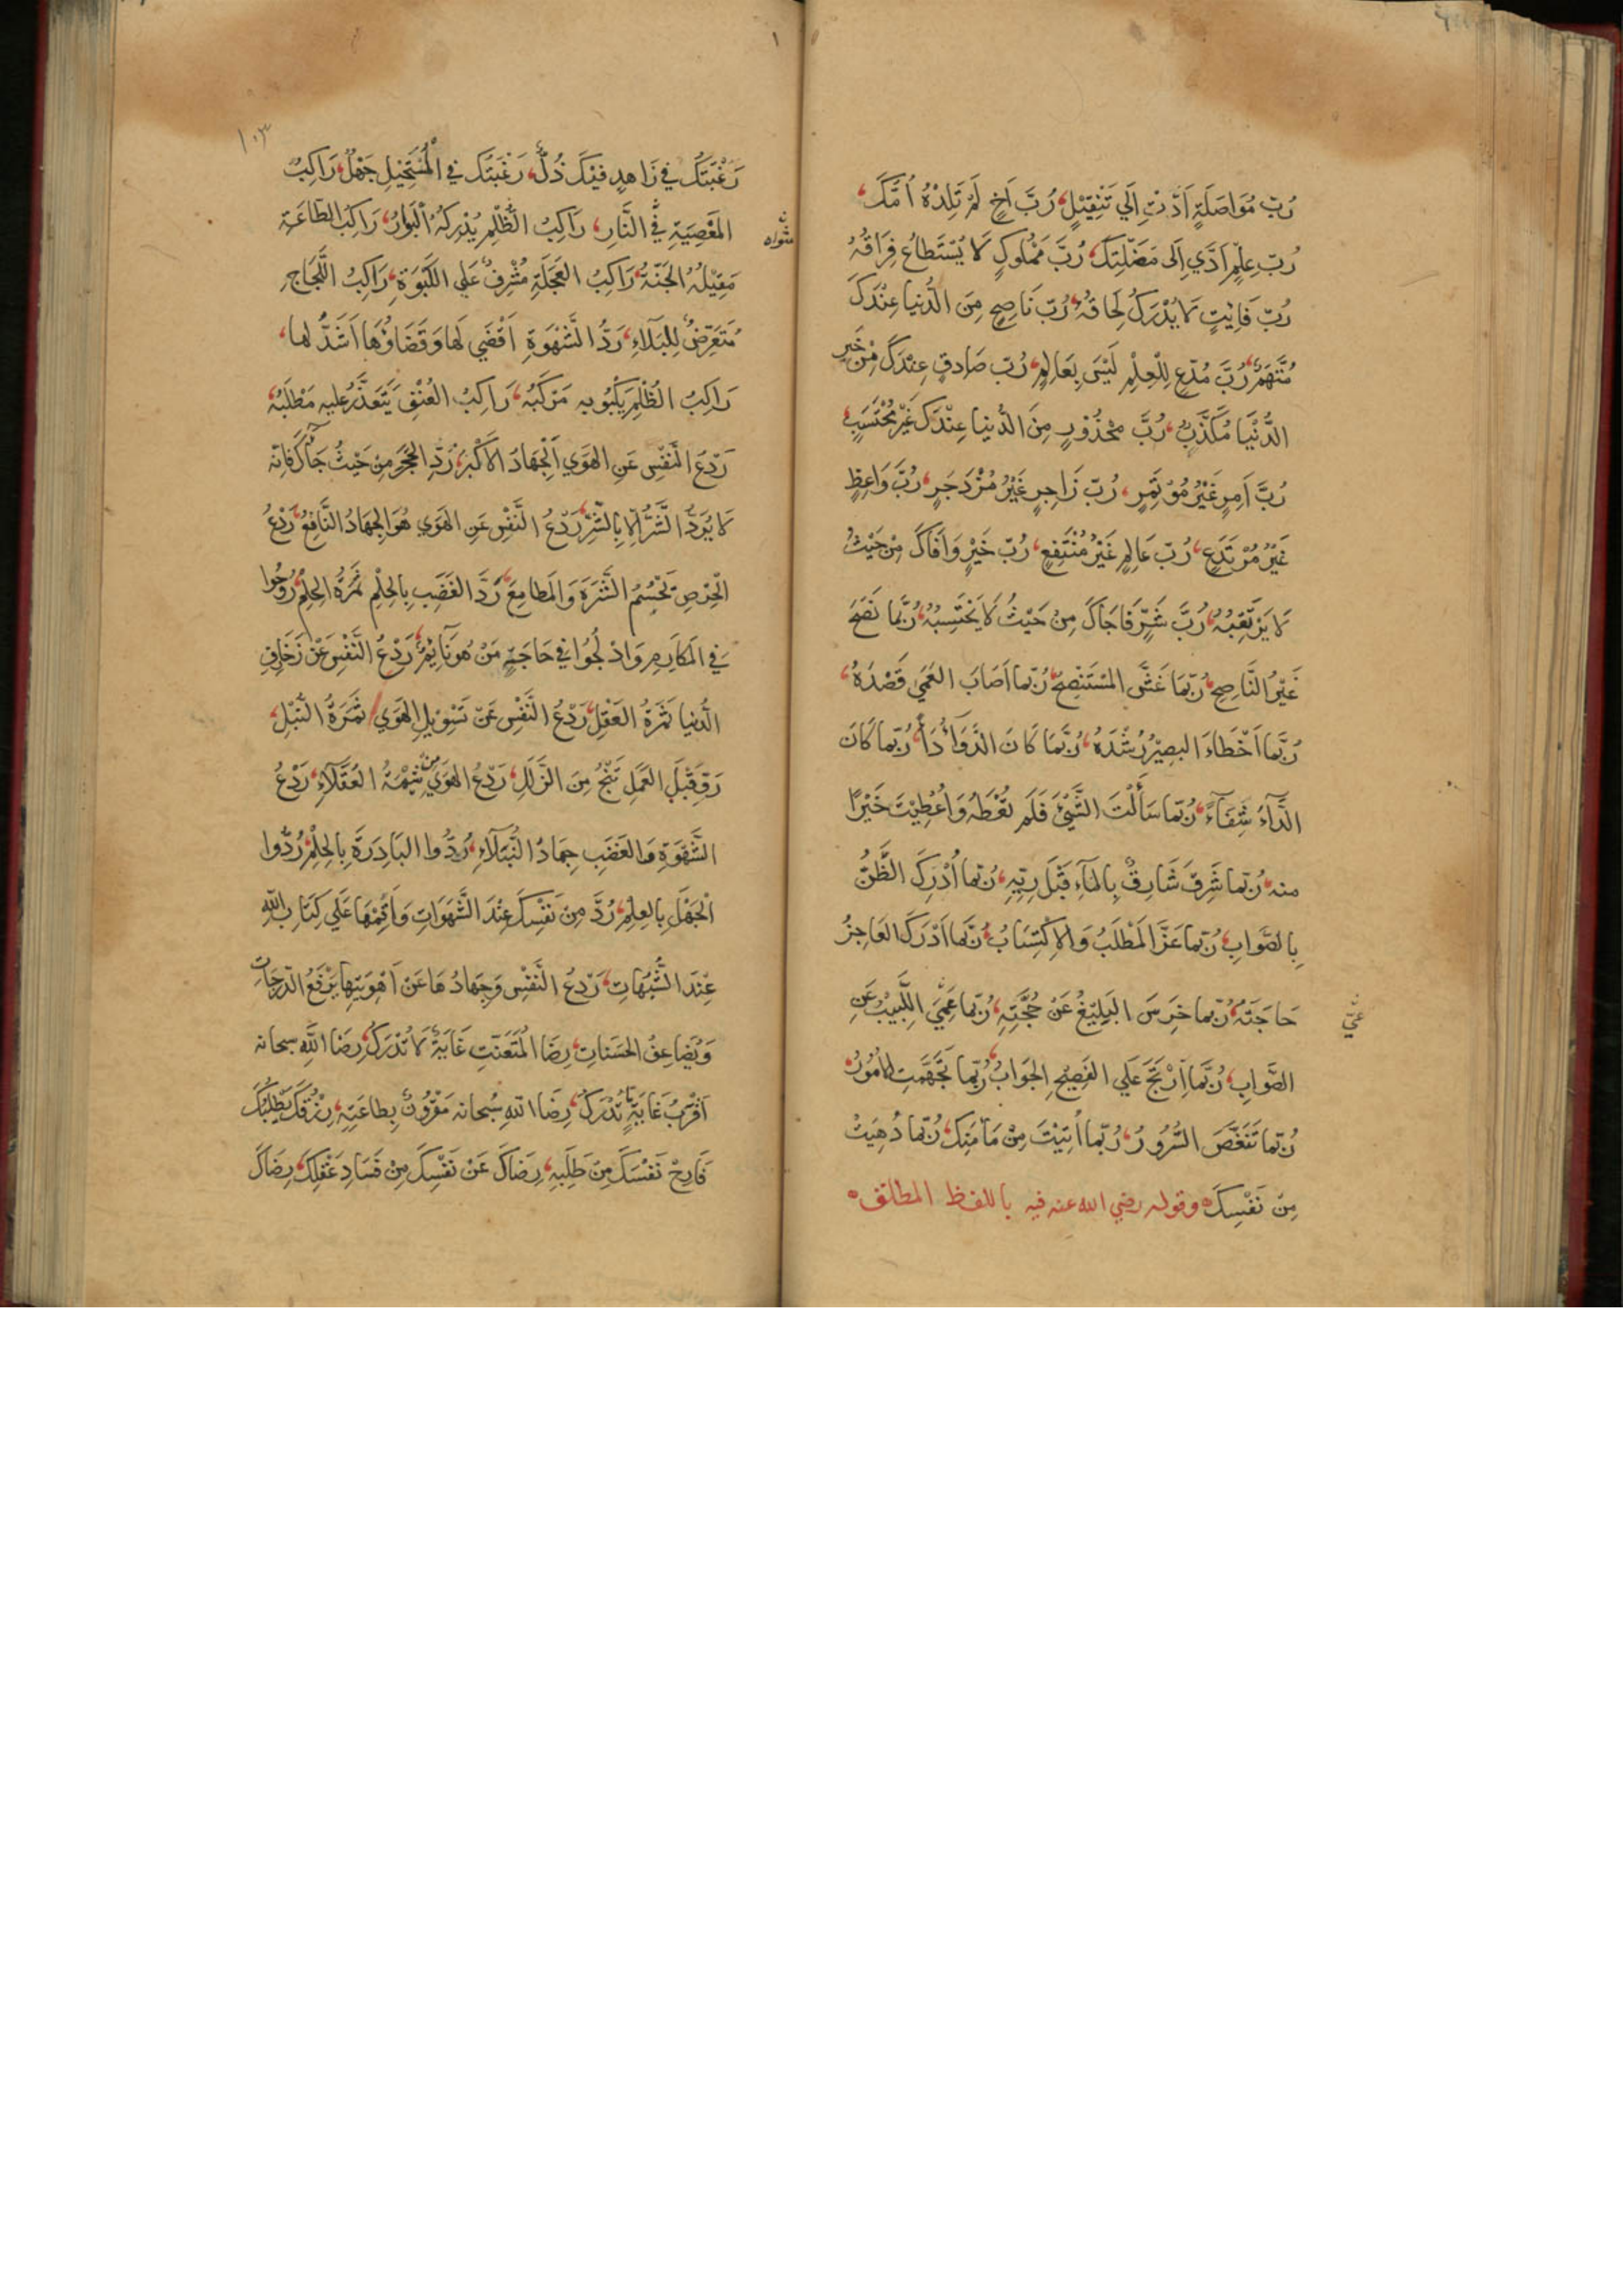 رُبَّ مُوَاصَلَةٍ اَدَّتْ اِلَي تَثْقِيْلٍ، رُبَّ اَخٍ لَمْ تَلِدْهُ اُمُّكَ،
رُبَّ عِلْمٍ اَدَّي اِلَى مَضَلَّتِكَ، رُبَّ مَمْلُوكٍ لَا يُسْتَطَاعُ فِرَاقُهُ
رُبَّ فَايِتٍ لَا يُدْرَكُ لِحَاقُهُ، رُبَّ نَاصِحٍ مِنَ الدُّنيا عِنْدَكَ
مُتَّهَمٌ، رُبَّ مُدَّعٍ لِلْعِلْمِ لَيْسَ بِعَالِمٍ، رُبَّ صَادِقٍ عِنْدَكَ مِنْ خَبَرِ
الدُّنْيَا مُكَذَّبٌ، رُبَّ مَحْذُورٍ مِنَ الدُّنيا عِنْدَكَ غَيْرُ مُحْتَسَبٍ،
رُبَّ اَمِرٍ غَيْرُ مُوْتَمِرٍ، رُبَّ زَاجِرٍ غَيْرُ مُزْدَجِرٍ، رُبَّ وَاعِظٍ
غَيْرُ مُرْتَدِعٍ، رُبَّ عَالِمٍ غَيْرُ مُنْتَفِعٍ، رُبَّ خَيْرٍ وَافَاكَ مِنْ حَيْثُ
لَا يَرْتَقِبُهُ، رُبَّ شَرٍّ فَاجَاكَ مِنْ حَيْثُ لَا يَحْتَسِبُهُ، رُبَّمَا نَصَحَ
غَيْرُ النَّاصِحِ، رُبَّمَا غَشَّ المُسْتَنْصِحُ، رُبَّمَا اَصَابَ العَمِي قَصْدَهُ،
رُبَّمَا اَخْطَاءَ البَصِيْرُ رُشْدَهُ، رُبَّمَا كَانَ الدَّوَآءُ دَآءً، رُبَّمَا كَانَ
الدَّآءُ شِفَآءً، رُبَّمَا سَأَلْتَ الشَّيْئَ فَلَمْ تُعْطَهُ وَاُعْطِيْتَ خَيْرًا
منه، رُبَّمَا شَرِقَ شَارِقٌ بِالمَآءِ قَبْلَ رِيِّهِ، رُبَّمَا اُدْرِكَ الظَّنُّ
بِالصَّوَابِ، رُبَّمَا عَزَّ المَطْلَبُ وَالاِكْتِسَابُ، رُبَّمَا اَدْرَكَ العَاجِزُ
حَاجَتَهُ، رُبَّمَا خَرِسَ البَلِيْغُ عَنْ حُجَّتِهِ، رُبَّمَا عَمِيَ اللَّبِيْبُ عَنِ
الصَّوَابِ، رُبَّمَا اُرْتِجَ عَلَي الفَصِيْحِ الجَوَابُ، رُبَّمَا تَجَهَّمَتِ الاُمُورُ،
رُبَّمَا تَنَغَّصَ السُّرُورُ، رُبَّمَا اُتِيْتَ مِنْ مَامَنِكَ، رُبَّمَا دُهِيْتَ
مِنْ نَفْسِكَ، وقوله رضي الله عنه فيه باللفظ المطلق
رَغْبَتُكَ في زَاهِدٍ فِيْكَ ذُلٌّ، رَغْبَتُكَ في المُسْتَحِيْلِ جَهْلٌ، رَاكِبُ
المَعْصِيَةِ في النَّارِ، رَاكِبُ الظُّلْمِ يُدْرِكُهُ البَوَارُ، رَاكِبُ الطَّاعَةِ
مَقِيْلُهُ الجَنَّةُ، رَاكِبُ العَجَلَةِ مُشْرِفٌ عَلَي الكَبْوَةِ، رَاكِبُ اللَّجَاجِ
مُتَعَرِّضٌ لِلْبَلَآءِ، رَدُّ الشَّهْوَةِ اَقْضَي لَهَا وَقَضَاؤُهَا اَشَدُّ لها،
رَاكِبُ الظُّلْمِ يَكْبُو بِهِ مَرْكَبُهُ، رَاكِبُ العُنْفِ يَتَعَذَّرُ عليه مَطْلَبُهُ،
رَدْعُ النَّفْسِ عَنِ الهَوَي الجِهَادُ الاَكْبَرُ، رُدَّ الحَجَرَ مِنْ حَيْثُ جَآءَكَ فَانه
لَا يُرَدُّ الشَّرُّ اِلَّا بِالشَّرِّ، رَدْعُ النَّفْسِ عَنِ الهَوَي هُوَ الجِهَادُ النَّافِعُ، رَدْعُ
الحِرْصِ يَحْسِمُ الشَّرَهَ وَالمَطَامِعَ، رَدُّ الغَضَبِ بِالحِلْمِ ثَمَرَةُ الحِلْمِ، رُوحُوا
في المَكَارِمِ وَادْلُجُوا في حَاجَةِ مَنْ هُوَ نَآيِمٌ، رَدْعُ النَّفْسِ عَنْ زَخَارِفِ
الدُّنيا ثَمَرَةُ العَقْلِ، رَدْعُ النَّفْسِ عَنْ تَسْوِيْلِ الهَوَي ثَمَرَةُ النُّبْلِ،
رَوِّ قَبْلَ العَمَلِ تَنْجُ مِنَ الزَّلَلِ، رَدْعُ الهَوَي مِنْ شِيْمَةِ العُقَلَآءِ، رَدْعُ
الشَّهْوَةِ وَالغَضَبِ جِهَادُ النُّبَلَآءِ، رُدُّوا البَادِرَةَ بِالحِلْمِ، رُدُّوا
الجَهْلَ بِالعِلْمِ، رُدَّ مِنْ نَفْسِكَ عِنْدَ الشَّهَوَاتِ وَاَقِمْهَا عَلَي كِتَابِ اللّٰهِ
عِنْدَ الشُّبُهَاتِ، رَدْعُ النَّفْسِ وَجِهَادُهَا عَنْ اَهْوِيَتِهَا يَرْفَعُ الدَّرَجَاتِ
وَيُضَاعِفُ الحَسَنَاتِ، رِضَا المُتَعَنِّتِ غَايَةٌ لَا تُدْرَكُ، رِضَا اللّٰهِ سبحانه
اَقْرَبُ غَايَةٍ تُدْرَكُ، رِضَا اللهِ سُبحانه مَقْرُونٌ بِطَاعَتِهِ، رِزْقُكَ يَطْلُبُكَ
فَارِحْ نَفْسَكَ مِنْ طَلَبِهِ، رِضَاكَ عَنْ نَفْسِكَ مِنْ فَسَادِ عَقْلِكَ، رِضَاكَ